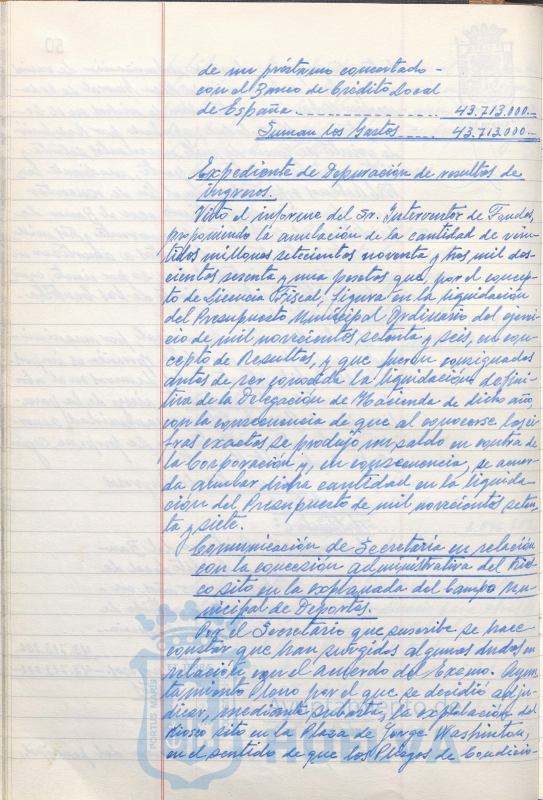 de un préstamo concertado -
con el Banco de Crédito Local
de España. ---------- 43.713.000.-
Suman los Gastos ---- 43.713.000.-
Expediente de Depuración de resultas de
Ingresos.
Visto el informe del Sr. Interventor de Fondos,
proponiendo la anulación de la cantidad de vein-
tidos millones setecientos noventa y tres mil dos-
cientos sesenta y una pesetas que, por el concep-
to de Licencia Fiscal, figura en la liquidación
del Presupuesto Municipal Ordinario del ejerci-
cio de mil novecientos setenta y seis, en con-
cepto de Resultas, y que fueron consignadas
antes de ser conocida la liquidación defini-
tiva de la Delegación de Hacienda de dicho año,
con la consecuencia de que al conocerse las ci-
fras exactas se produjo un saldo en contra de
la Corporación y, en consecuencia, se acuer-
da anular dicha cantidad en la liquida-
ción del Presupuesto de mil novecientos seten-
ta y siete.
Comunicación de Secretaría en relación
con la concesión administrativa del Kios-
co sito en la explanada del Campo Mu-
nicipal de Deportes.
Por el Secretario que suscribe, se hace
constar que han surgidos algunas dudas en
relación con el acuerdo del Excmo. Ayun-
tamiento Pleno por el que se decidió adju-
dicar, mediante subasta, la explotación del
Kiosco sito en la Plaza de Jorge Washington,
en el sentido de que los Pliegos de Condicio-
PORTUS MARIS